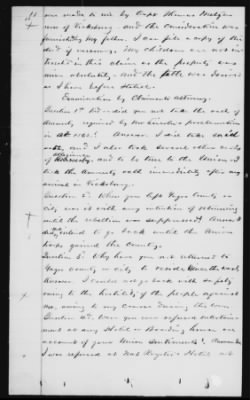 was made to me by Capt Thomas
ness of Vicksburg and the consideration was
furnished by my father. I can file a copy of this
deed if necessary. My children are not in-
terested in this claim as the property was
mine absolutely. and the title was derived
as I have before stated.
Examination by Claimants attorney.
Question 1st Did or did you not take the oath of
Amnesty required by Mr Lincolns proclamation
in at 1863? Answer. I did take said
oath, and I also took several other oaths
of allegiance, and to be true to the Union. I
took the Amnesty oath immediately after my
arrival in Vicksburg.
Question 2. When you left Yazoo County or
City was it with any intention of returning
until the rebellion was suppressed? Answer I
did not intend to go back until the Union
troops gained the County.
Question 3. Why have you not returned to
Yazoo County or City to reside since the war?
Answer. I could not go back with safety
owing to the hostility of the people against
me, owing to my course during the war.
Question 4. Were you ever refused entertain-
ment at any Hotel or Boarding house on
account of your Union Sentiments? Answer
I was refused at Hotel at